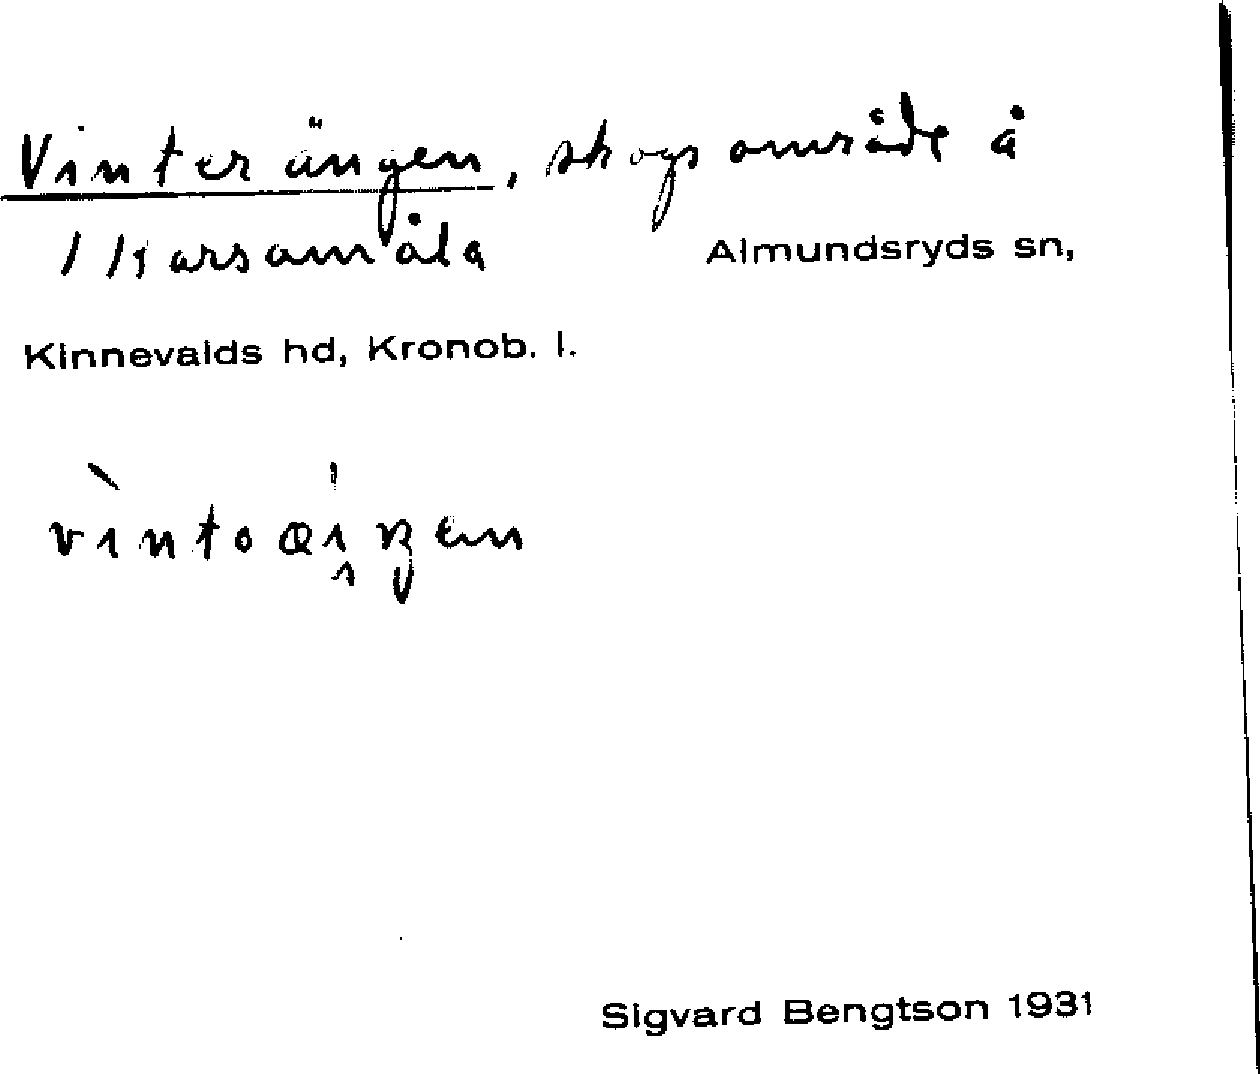 Vinterängen, skogsområde å
/ Karsamåla Almundsryds sn,
Kinnevalds hd, Kronob. l.
Sigvard Bengtson 1931